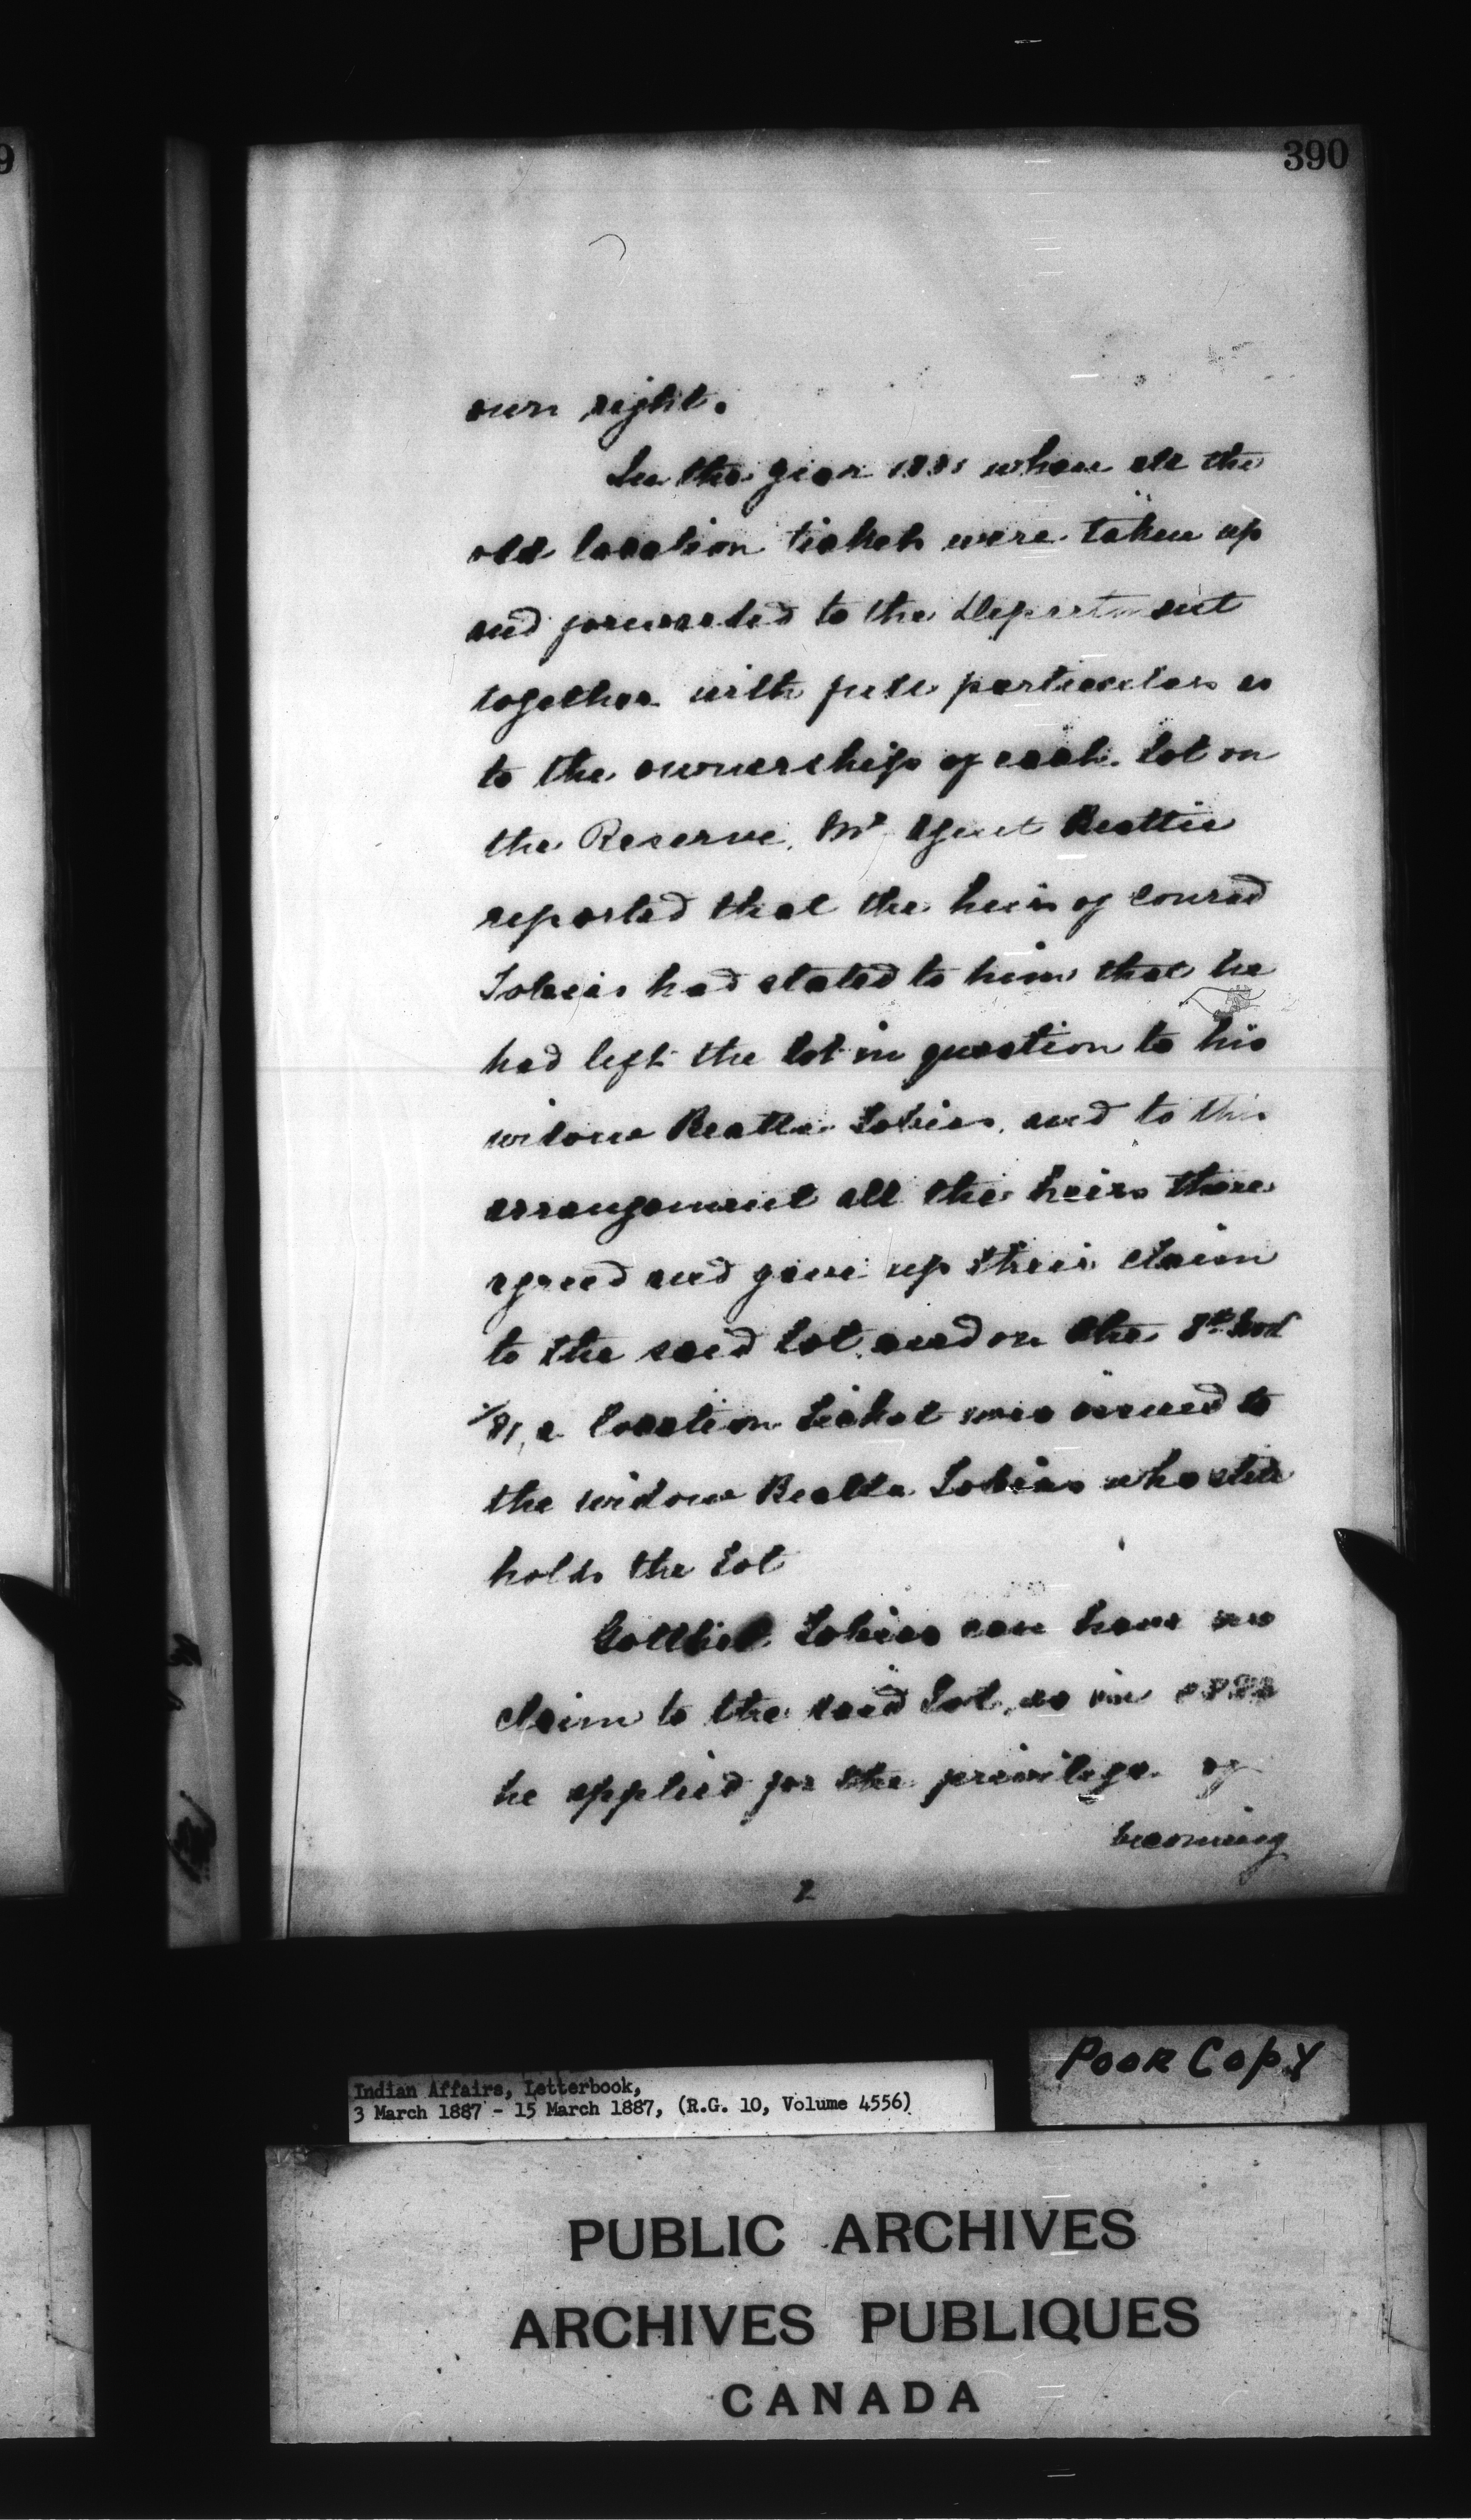 9
390
own right.
In the year 1881 when all the
old location tickets were taken up
and forwarded to the Department
together with full particulars as
to the ownership of each lot on
the Reserve, Mr Agent Beattie
reported that the heirs of Conrad
Tobias had stated to him that he
had left the lot in question to his
widow Beatta Tobias, and to this
arrangement all the heirs there
agreed and gave up their claim
to the said lot and on the 8th
/81, a location ticket was issued to
the widow Beatta Tobias who still
holds the lot
Gottlieb Tobias can have no
claim to the said Lot, as in
he applied for the privilege of
becoming
2
Poor Copy
Indian Affairs, Letterbook,
3 March 1887 - 15 March 1887, (R.G. 10, Volume 4556)
PUBLIC ARCHIVES
ARCHIVES PUBLIQUES
CANADA